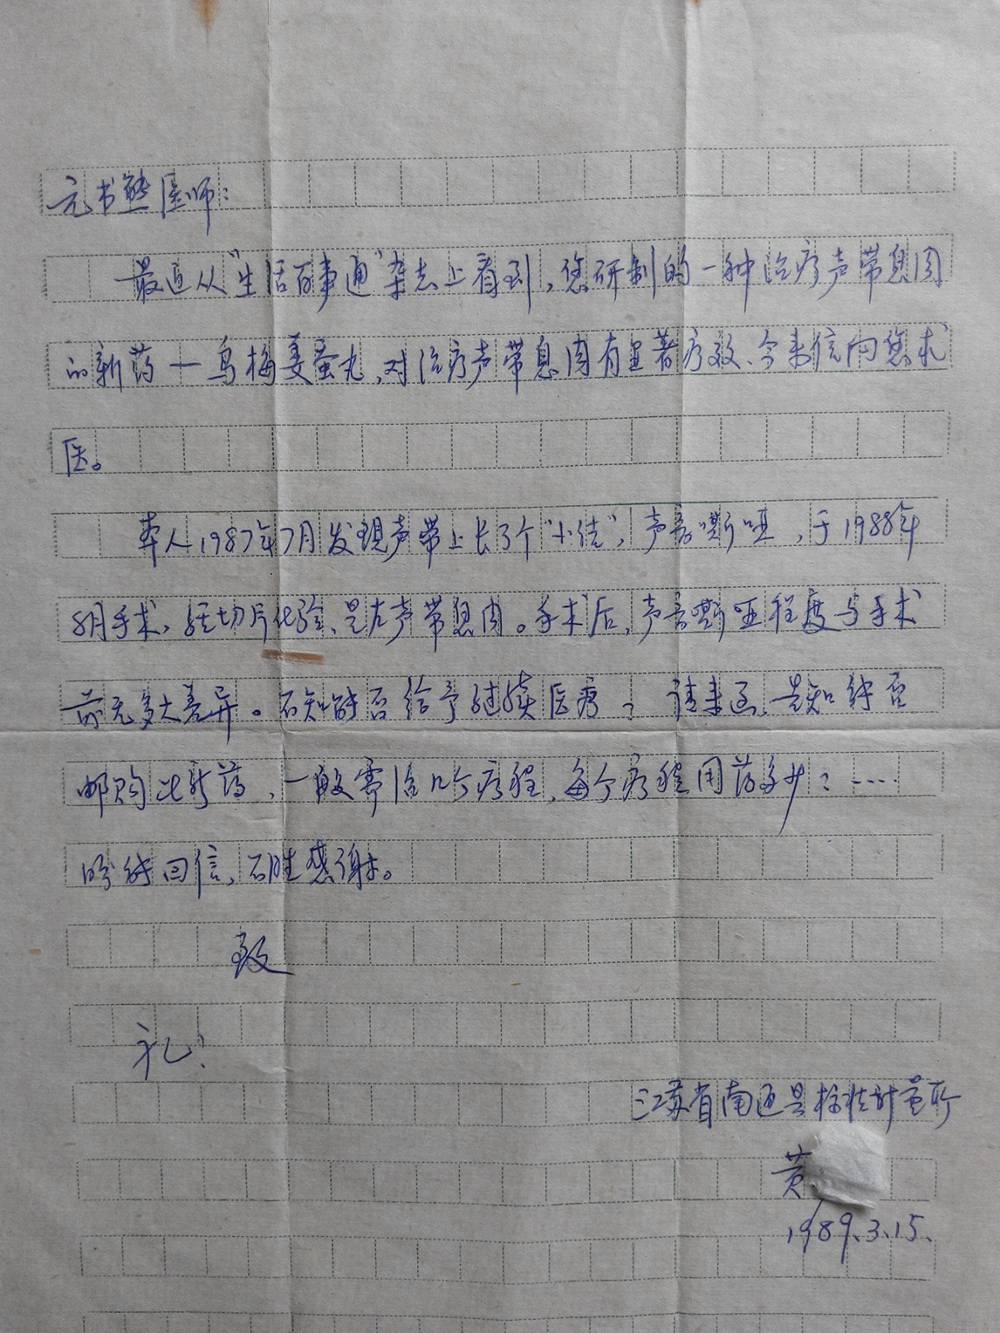 元书熊医师：
最近从“生活百事通”杂志上看到，您研制的一种治疗声带息肉
的新药一乌梅姜蚕丸，对治疗声带息肉有显著疗效、今来信向您求
医。
本人1987年7月发现声带上长了个“小结”，声音嘶哑，于1988年
8月手术，经切片化验，是左声带息肉。手术后，声音嘶哑程度与手术
前无多大差异。不知能否给予继续医疗？请来函，是知能否
邮购此新药，一般需治几个疗程，每个疗程用药多少？....
盼能回信，不胜感谢。
致
礼！
江苏省南通县标准计量所
黄
1989.3.15.